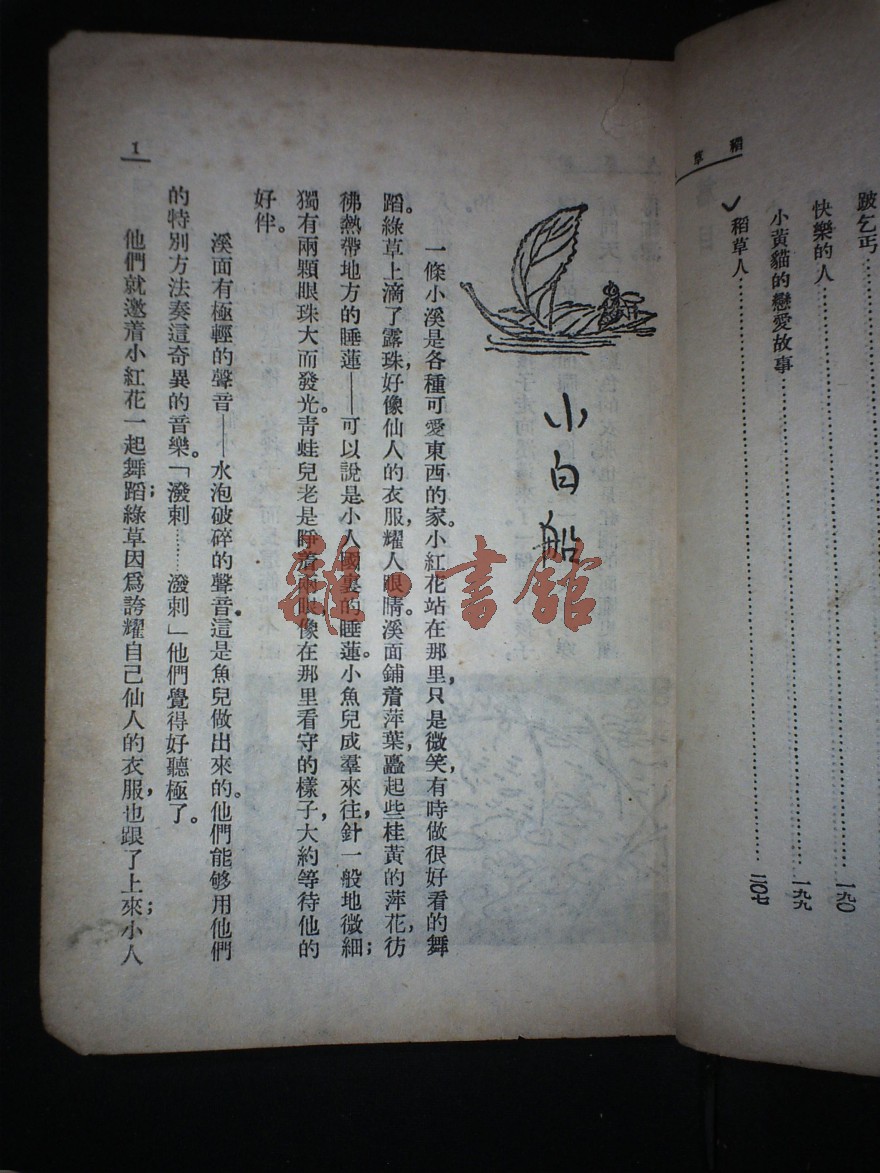 稻草
跛乞丐
快樂的人……………………一九〇
小黃貓的戀愛故事……………………一九九
稻草人……………………二〇七
小白船
一條小溪是各種可愛東西的家。小紅花站在那里，只是微笑，有時做很好看的舞
蹈。綠草上滴了露珠，好像仙人的衣服，耀人眼睛。溪面鋪着萍葉，矗起些桂黃的萍花，彷
彿熱帶地方的睡蓮——可以說是小人國裏的睡蓮。小魚兒成羣來往，針一般地微細；
獨有兩顆眼珠大而發光。青蛙兒老是睜着兩眼，像在那里看守的樣子，大約等待他的
好伴。
溪面有極輕的聲音——水泡破碎的聲音。這是魚兒做出來的。他們能够用他們
的特別方法奏這奇異的音樂。「潑剌……潑剌」他們覺得好聽極了。
他們就邀着小紅花一起舞蹈；綠草因爲誇耀自己仙人的衣服，也跟了上來；小人
1
雜·書館